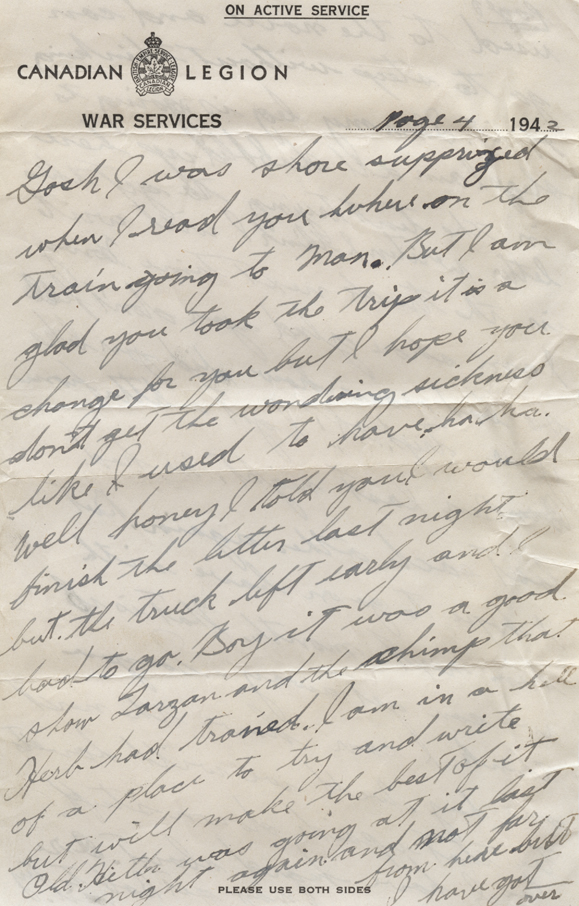 ON ACTIVE SERVICE
CANADIAN LEGION
WAR SERVICES
Page 4 1942
Gosh I was shore supprized
when I read you where on the
train going to Man. But I am
glad you took the trip it is a
change for you but I hope you
don't get the wondering sickness
like I used to have, ha, ha.
Well honey I told you I would
finish the letter last night
but the truck left early and I
had to go. Boy it was a good
show Tarzan and the chimp that
Herb had trained. I am in a hell
of a place to try and write
but will make the best of it
Old was going at it last
night again and not far
from here but
I have got
over
PLEASE USE BOTH SIDES